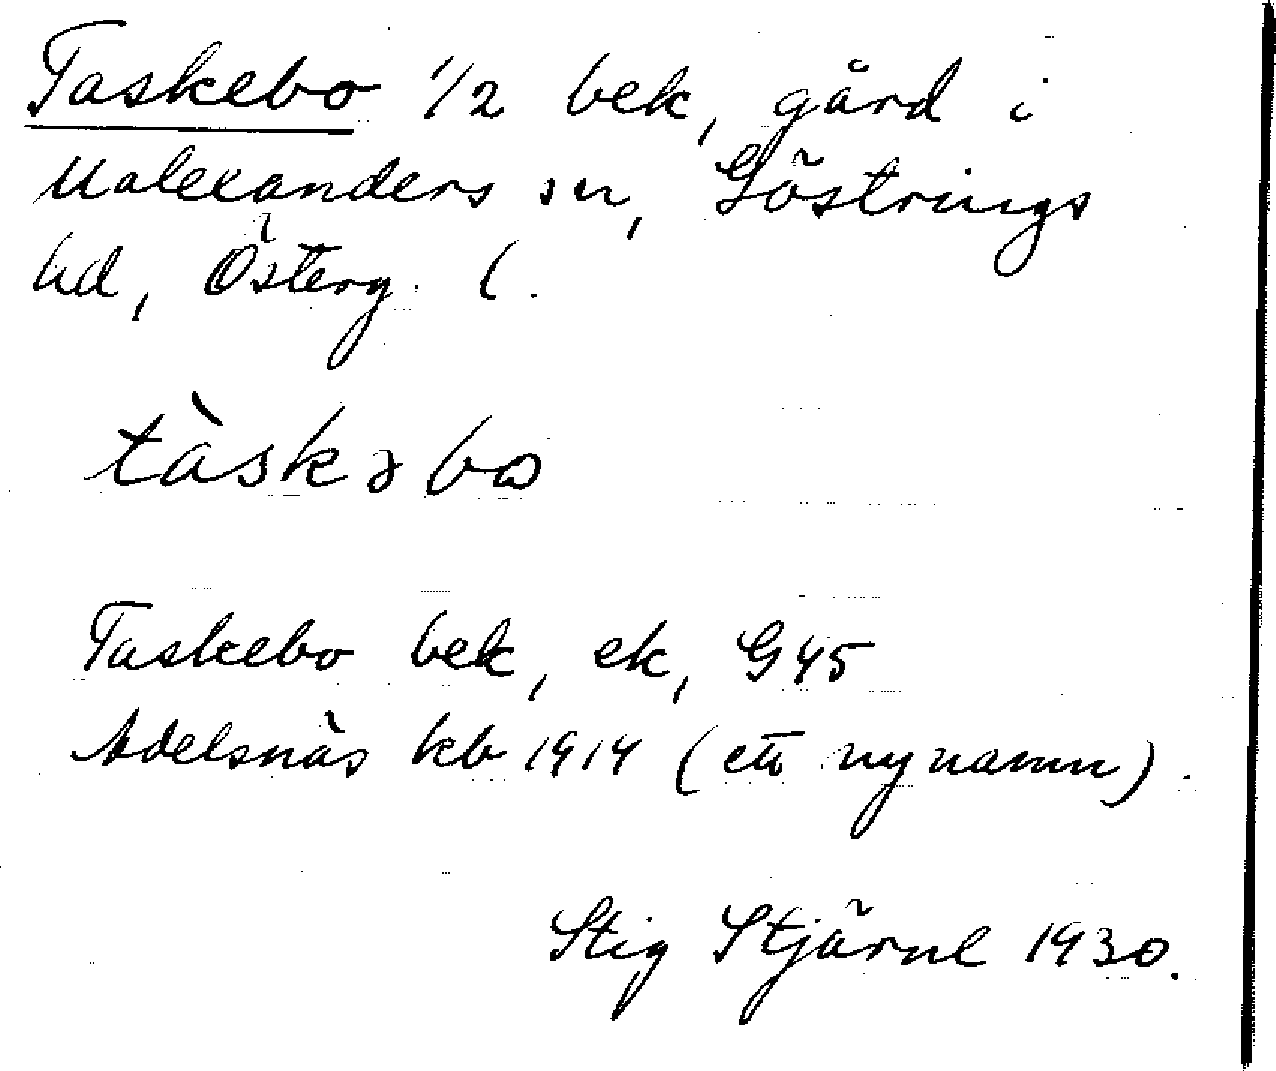 Taskebo 1/2 bek, gård i
Malexanders sn, Göstrings
hd, Österg. l.
tàskəbo
Taskebo bek, ek, G45
Adelsnäs kb 1914 (ett ny namn).
Stig Stjärne 1930.